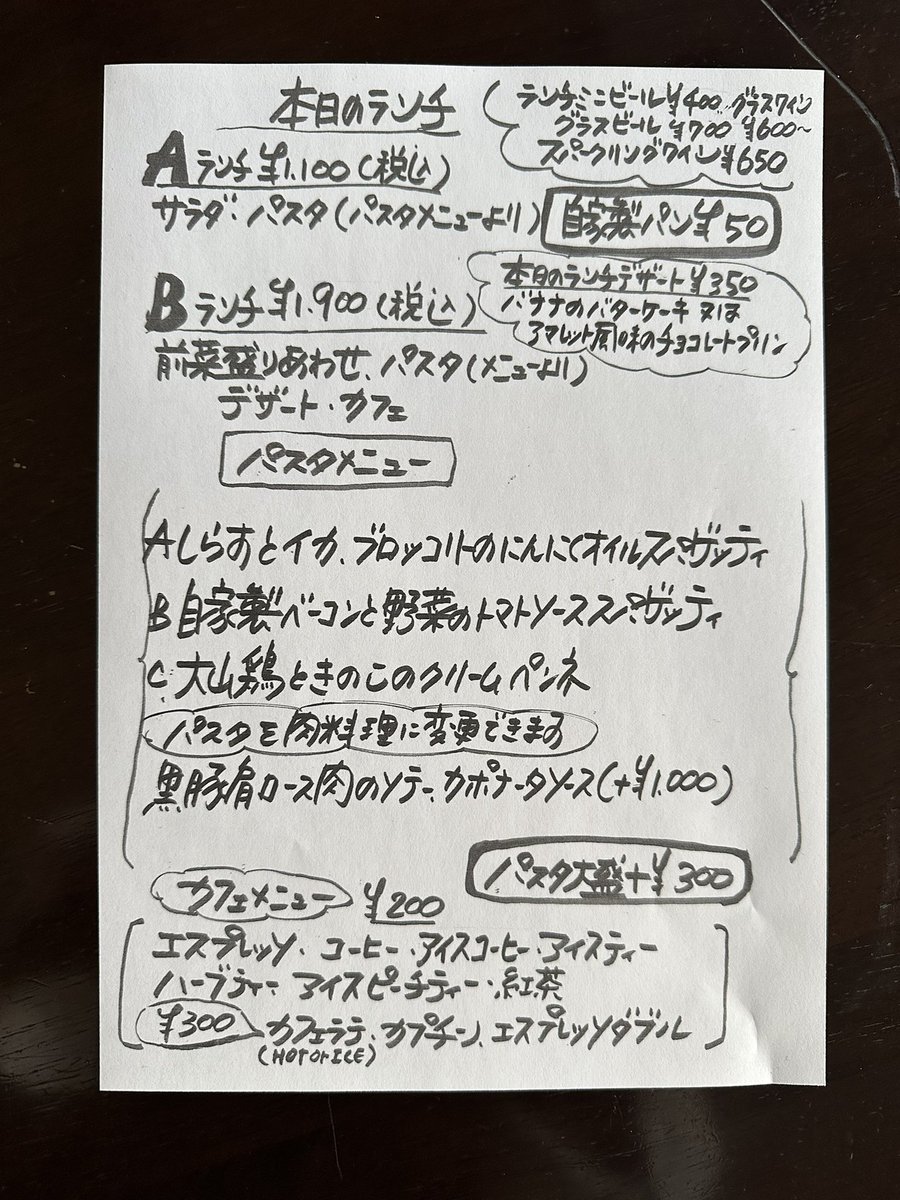 本日のランチ
ランチミニビール¥400 グラスワイン
グラスビール ¥700 ¥600〜
スパークリングワイン¥650
Aランチ¥1.100(税込)
サラダ・パスタ(パスタメニューより)
自家製パン¥50
本日のランチデザート¥350
バナナのバターケーキ 又は
アマレット風味のチョコレートプリン
Bランチ¥1.900(税込)
前菜盛りあわせ、パスタ(メニューより)
デザート・カフェ
パスタメニュー
Aしらすとイカ、ブロッコリーのにんにくオイルスパゲッティ
B自家製ベーコンと野菜のトマトソーススパゲッティ
C.大山鶏ときのこのクリームペンネ
パスタを肉料理に変更できます
黒豚肩ロース肉のソテー、カポナータソース(+¥1.000)
パスタ大盛+¥300
カフェメニュー ¥200
エスプレッソ・コーヒー・アイスコーヒー・アイスティー
ハーブティー・アイスピーチティー・紅茶
¥300 カフェラテ、カプチーノ、エスプレッソダブル
(HOTorICE)